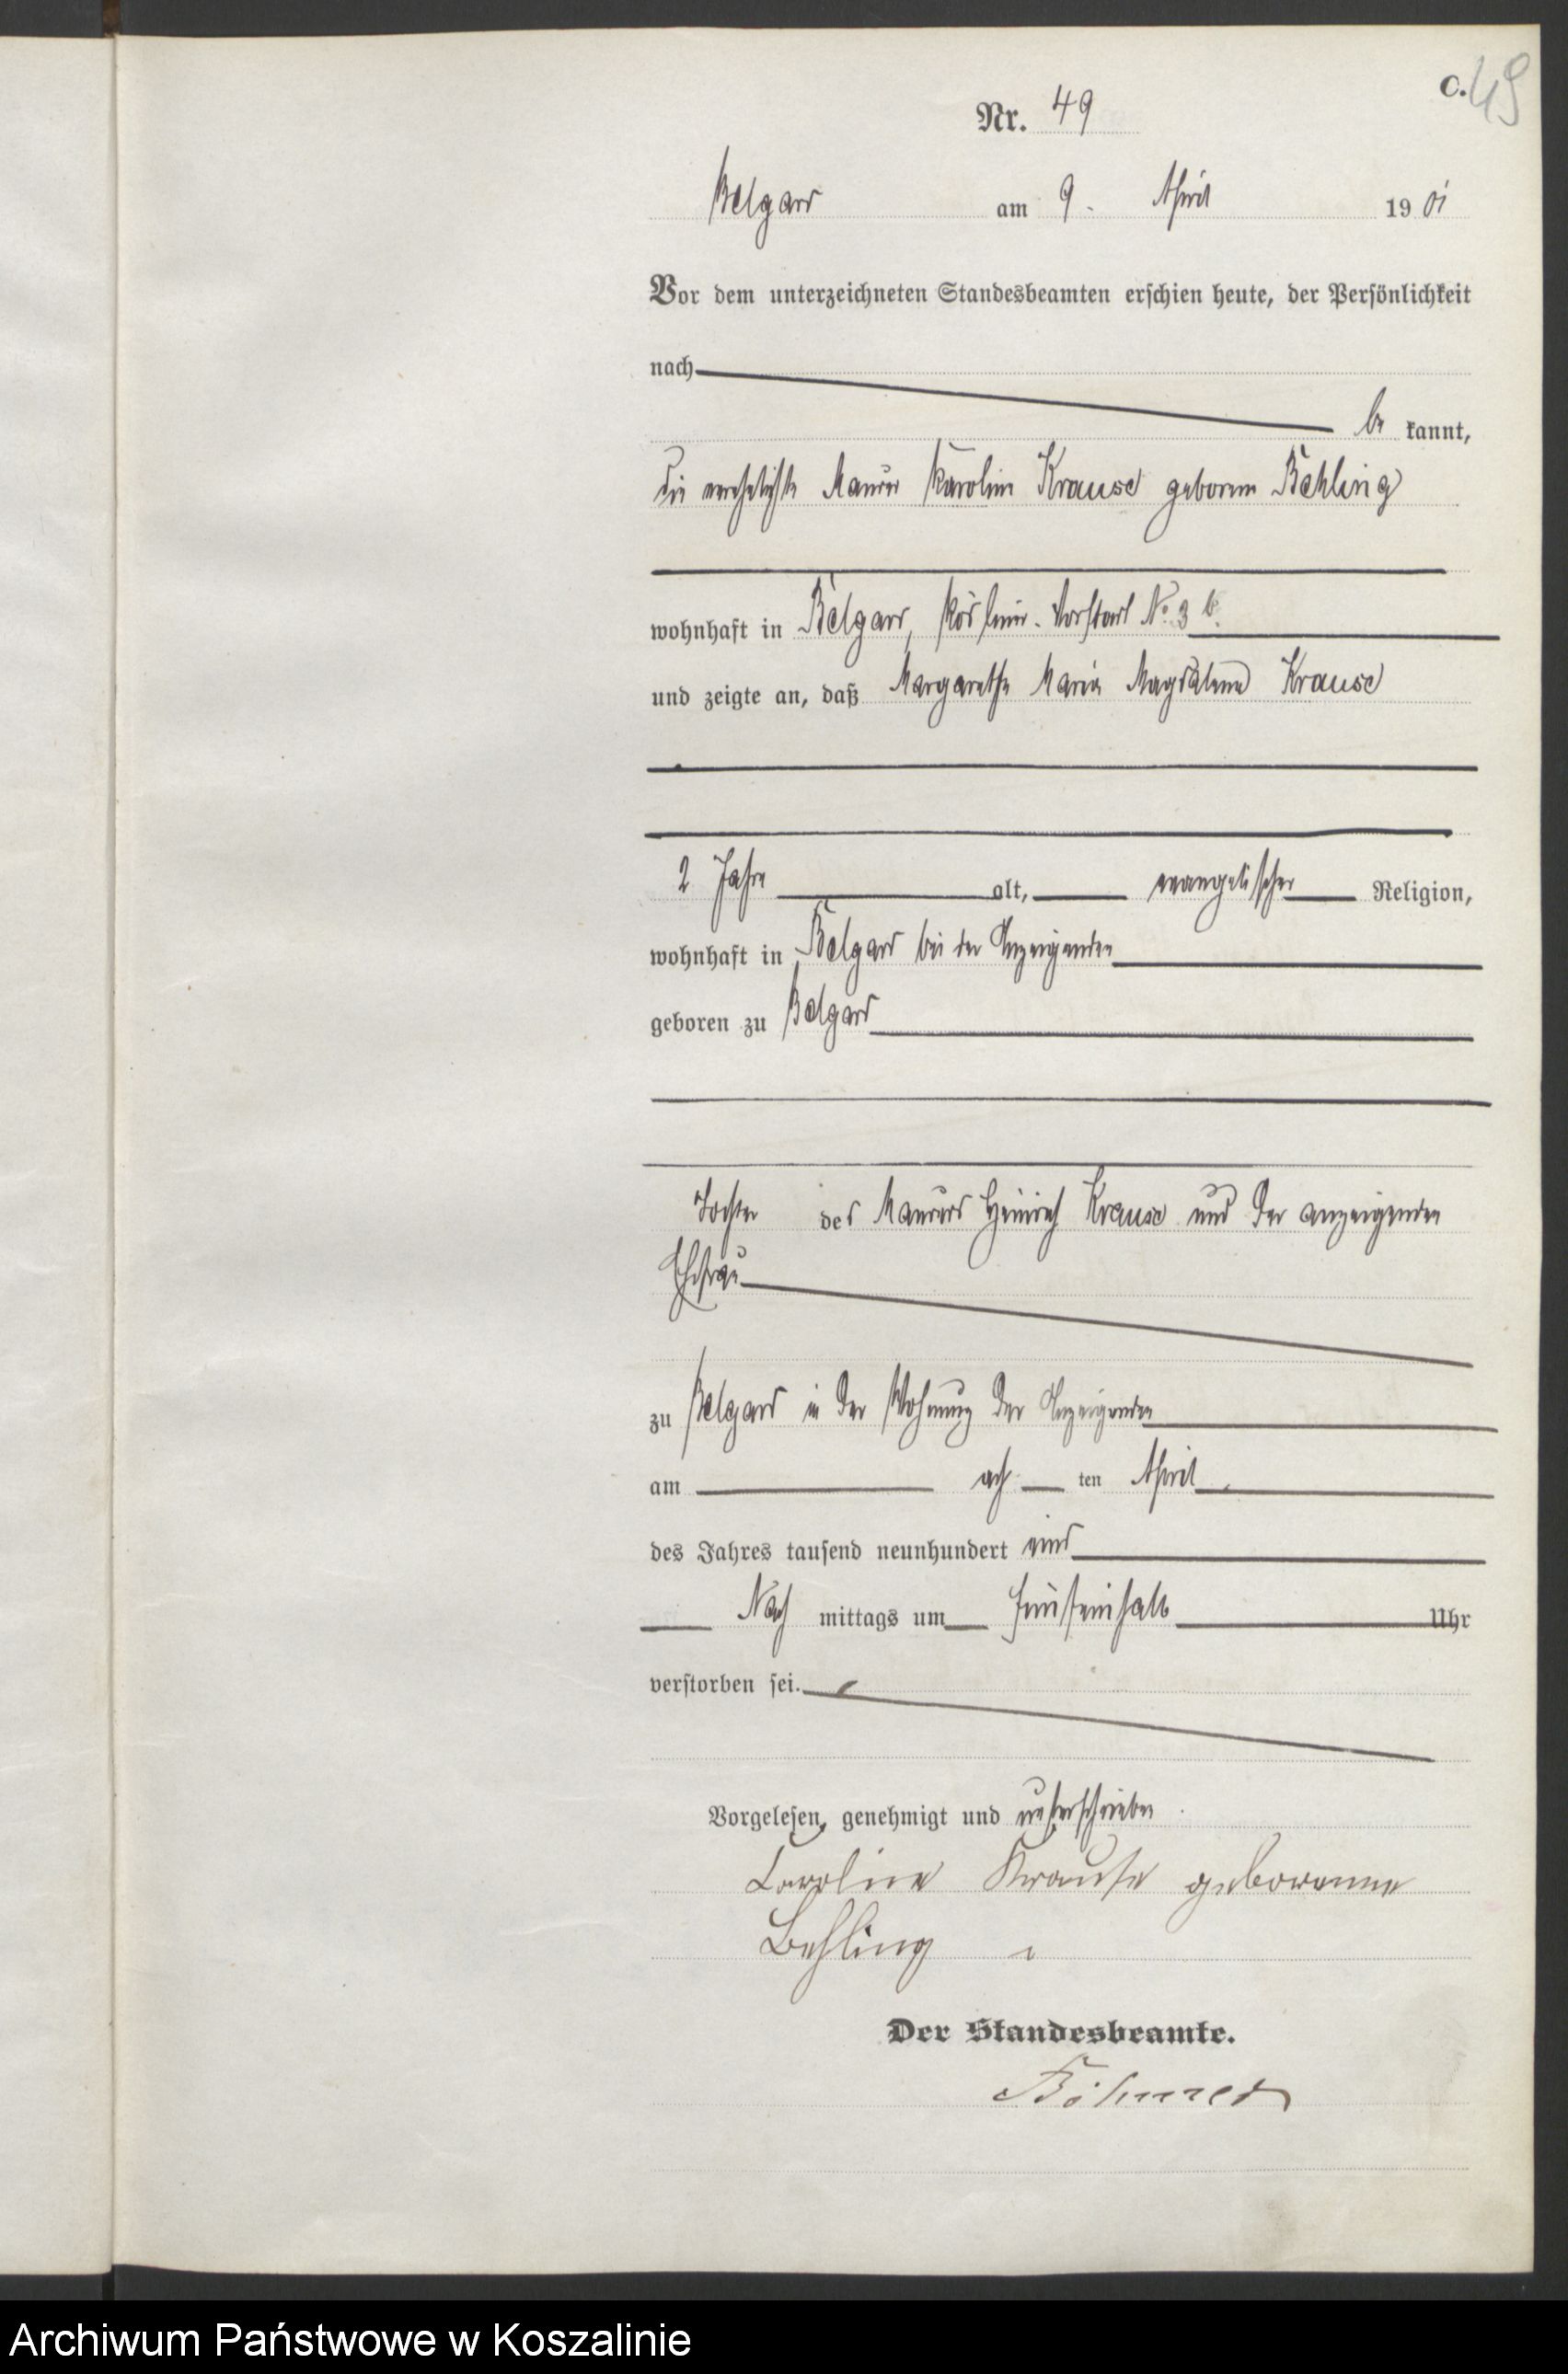 C. 49
Nr. 49
Belgard am 9. April 1901
Vor dem unterzeichneten Standesbeamten erschien heute, der Persönlichkeit
nach
be kannt,
die verehelichte Maurer Karoline Krause geborene Behling
wohnhaft in Belgard, Kösliner Vorstadt No. 3 b.
und zeigte an, daß Margarethe Maria Magdalena Krause
2 Jahre alt, evangelischer Religion,
wohnhaft in Belgard bei der Anzeigenden
geboren zu Belgard
Tochter des Maurers Heinrich Krause und der anzeigenden
Ehefrau
zu Belgard in der Wohnung der Anzeigenden
am ach ten April
des Jahres tausend neunhundert eins
Nach mittags um fünfeinhalb Uhr
verstorben sei.
Vorgelesen, genehmigt und unterschrieben.
Caroline Krause geborenne
Behling
Der Standesbeamte.
Böhmer
Archiwum Państwowe w Koszalinie